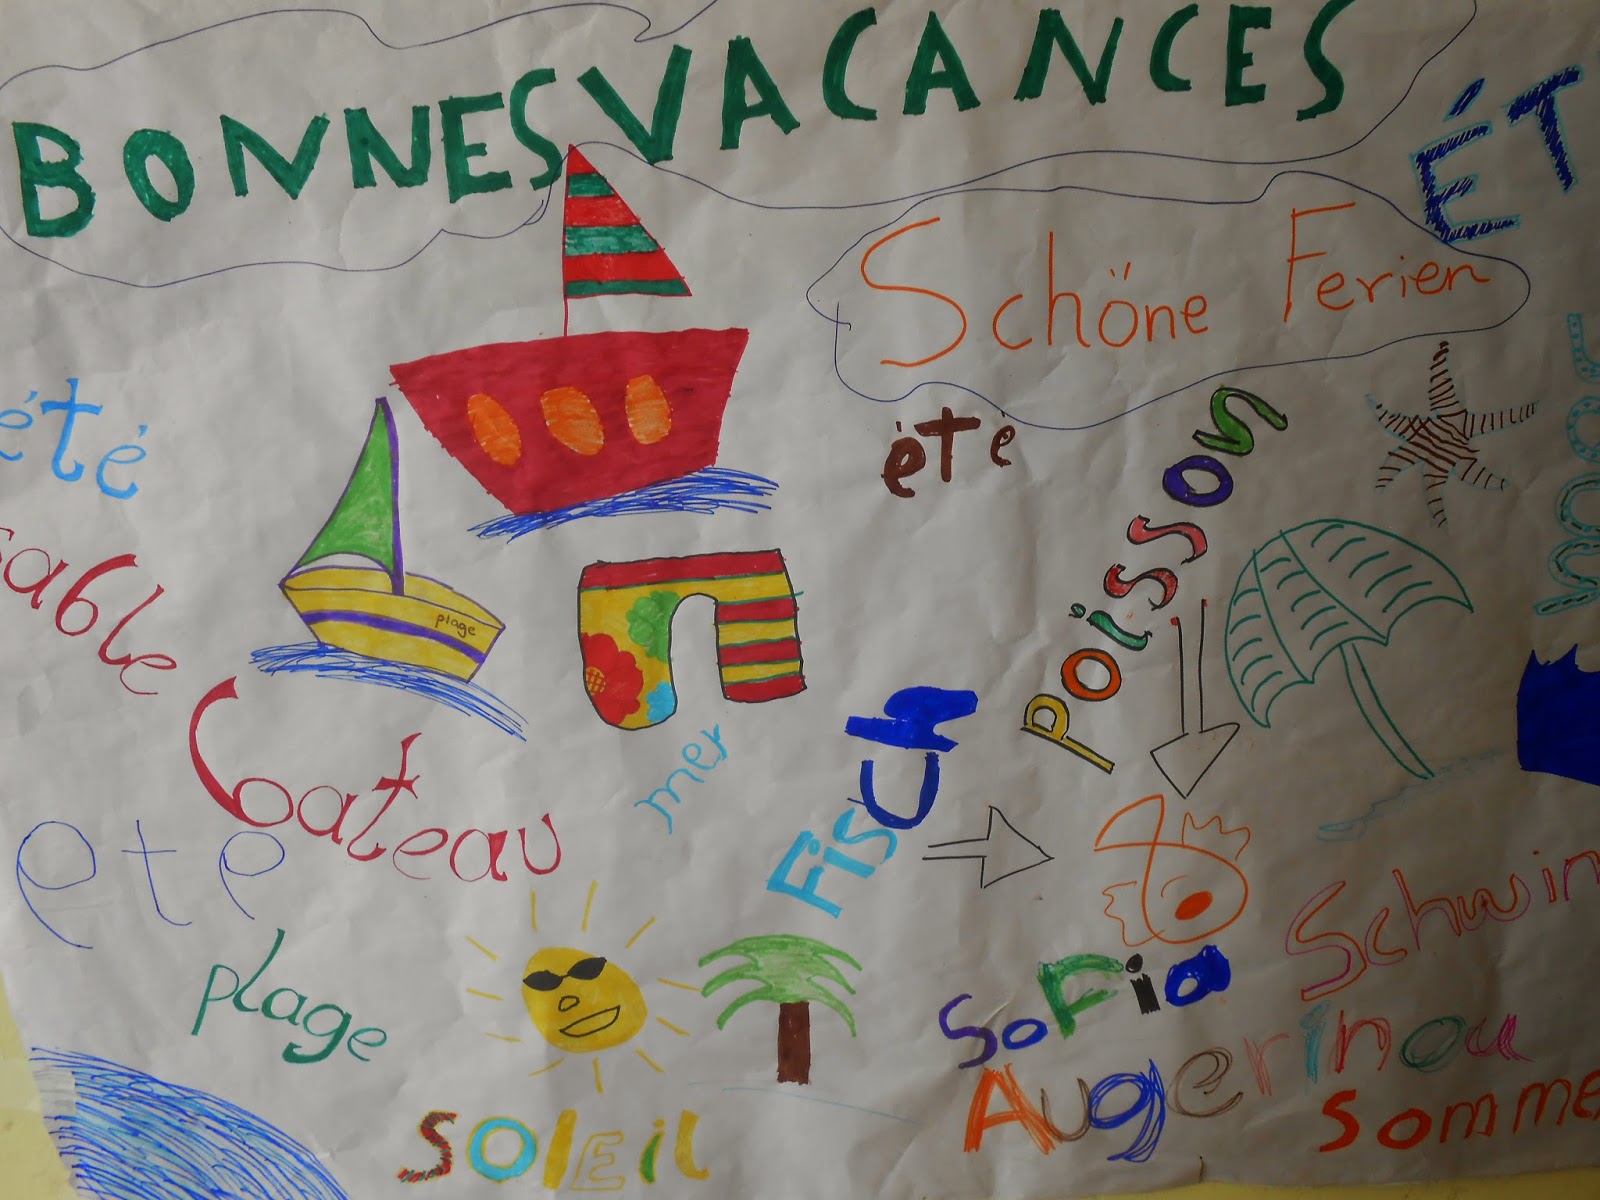 BONNES VACANCES
ÉT
Schöne Ferien
été
été
poisson
sable
plage
Fisch
mer
Gateau
ete
plage
Schwim
Sofia
Augerinou
Somme
SOLEIL